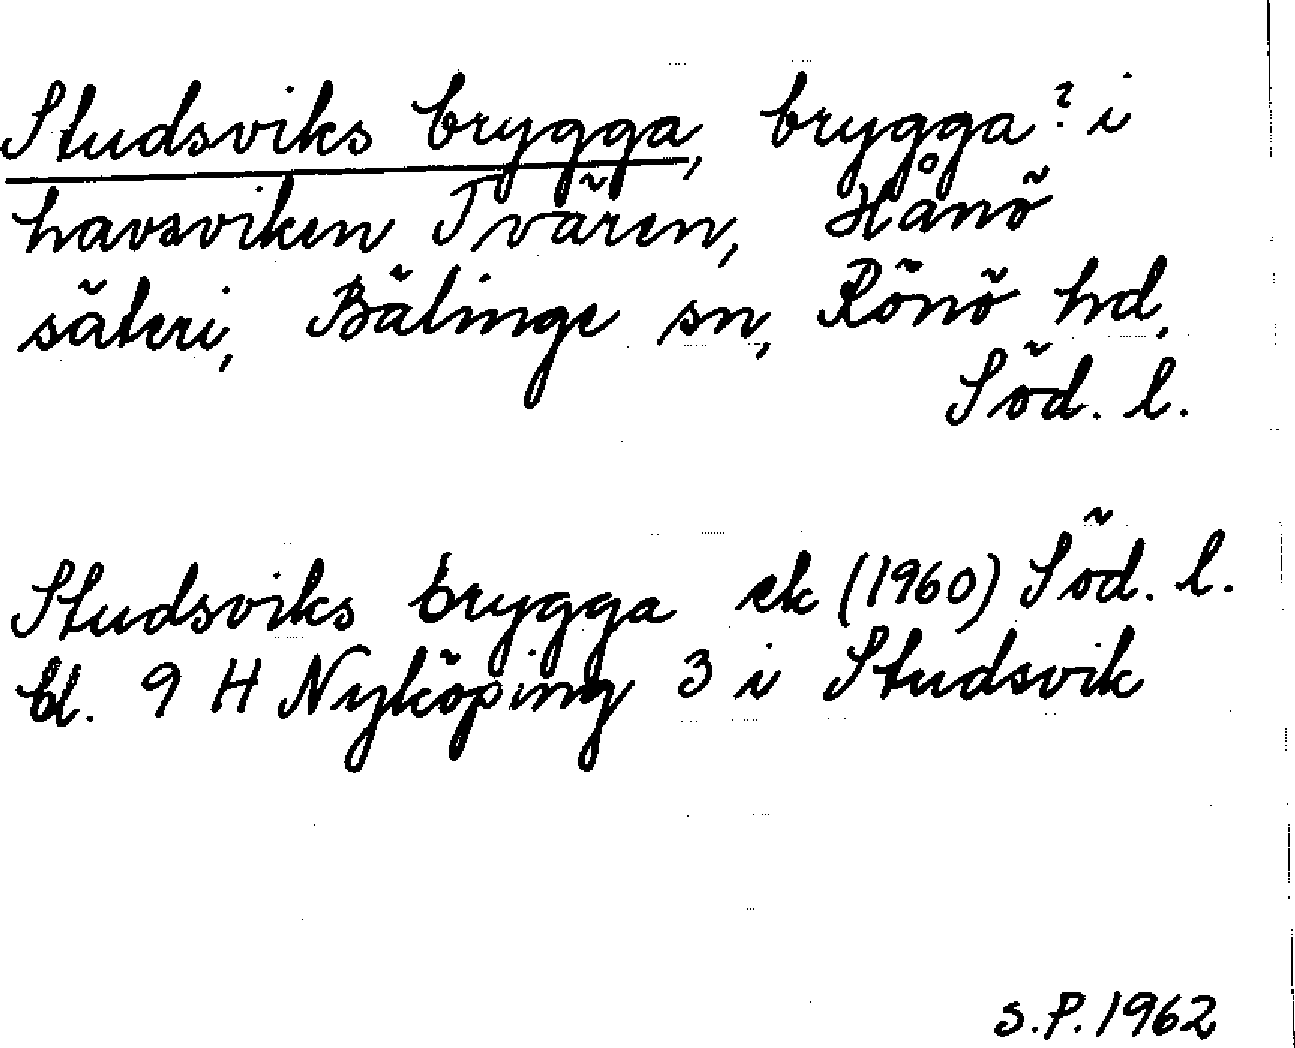 Studsviks brygga, brygga? i
havsviken Tvären, Hånö
säteri, Bälinge sn, Rönö hd.
Söd. l.
Studsviks brygga ek (1960) Söd. l.
bl. 9 H Nyköping 3 i Studsvik
S.P. 1962